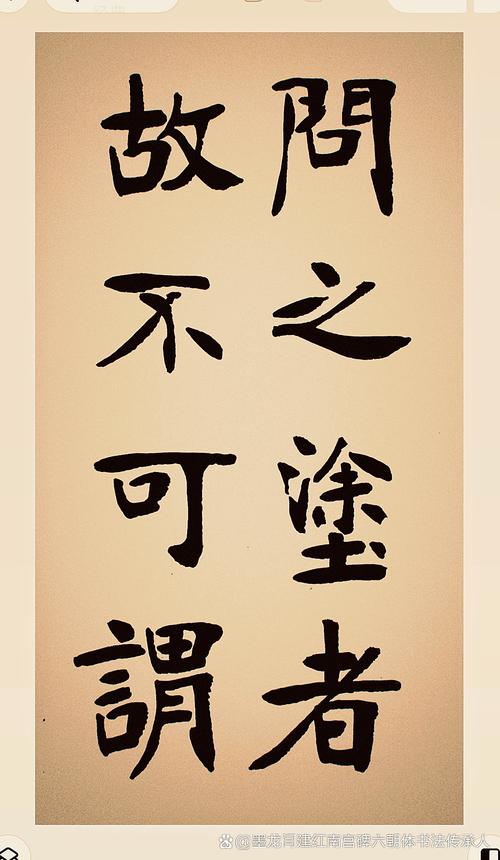 問之塗者
故不可謂
@墨龙河建红南宫碑六朝体书法传承人